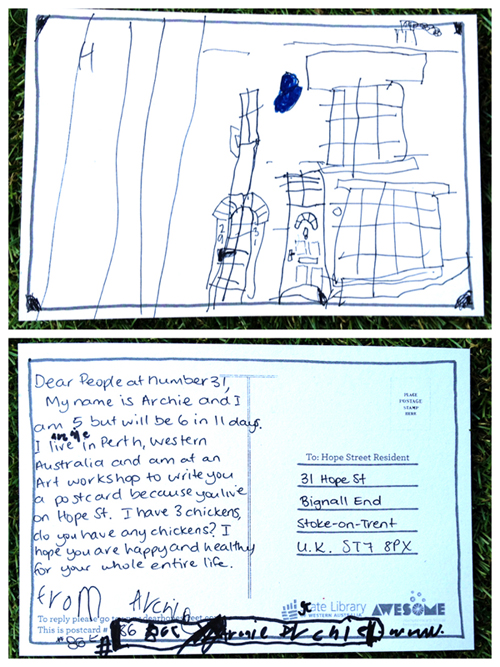 H
29
31
Dear People at number 31,
My name is Archie and I
am 5 but will be 6 in 11 days.
I live in Perth, Western
Australia and am at an
Art workshop to write you
a postcard because you live
on Hope St. I have 3 chickens,
do you have any chickens? I
hope you are happy and healthy
for your whole entire life.
From Archie
PLACE
POSTAGE
STAMP
HERE
To: Hope Street Resident
31 Hope St
Bignall End
Stoke-on-Trent
U.K. ST7 8PX
State Library
WESTERN AUSTRALIA
AWESOME
To reply please go to
This is postcard #